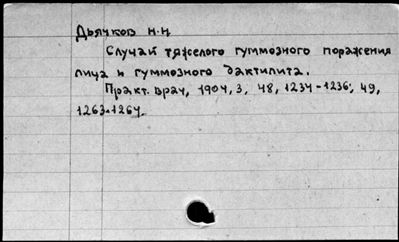 Дьячков Н.Н
Случай тяжелого гуммозного поражения
лица и гуммозного дактилита.
Практ. врач, 1904, 3, 48, 1234-1236; 49,
1263-1264.